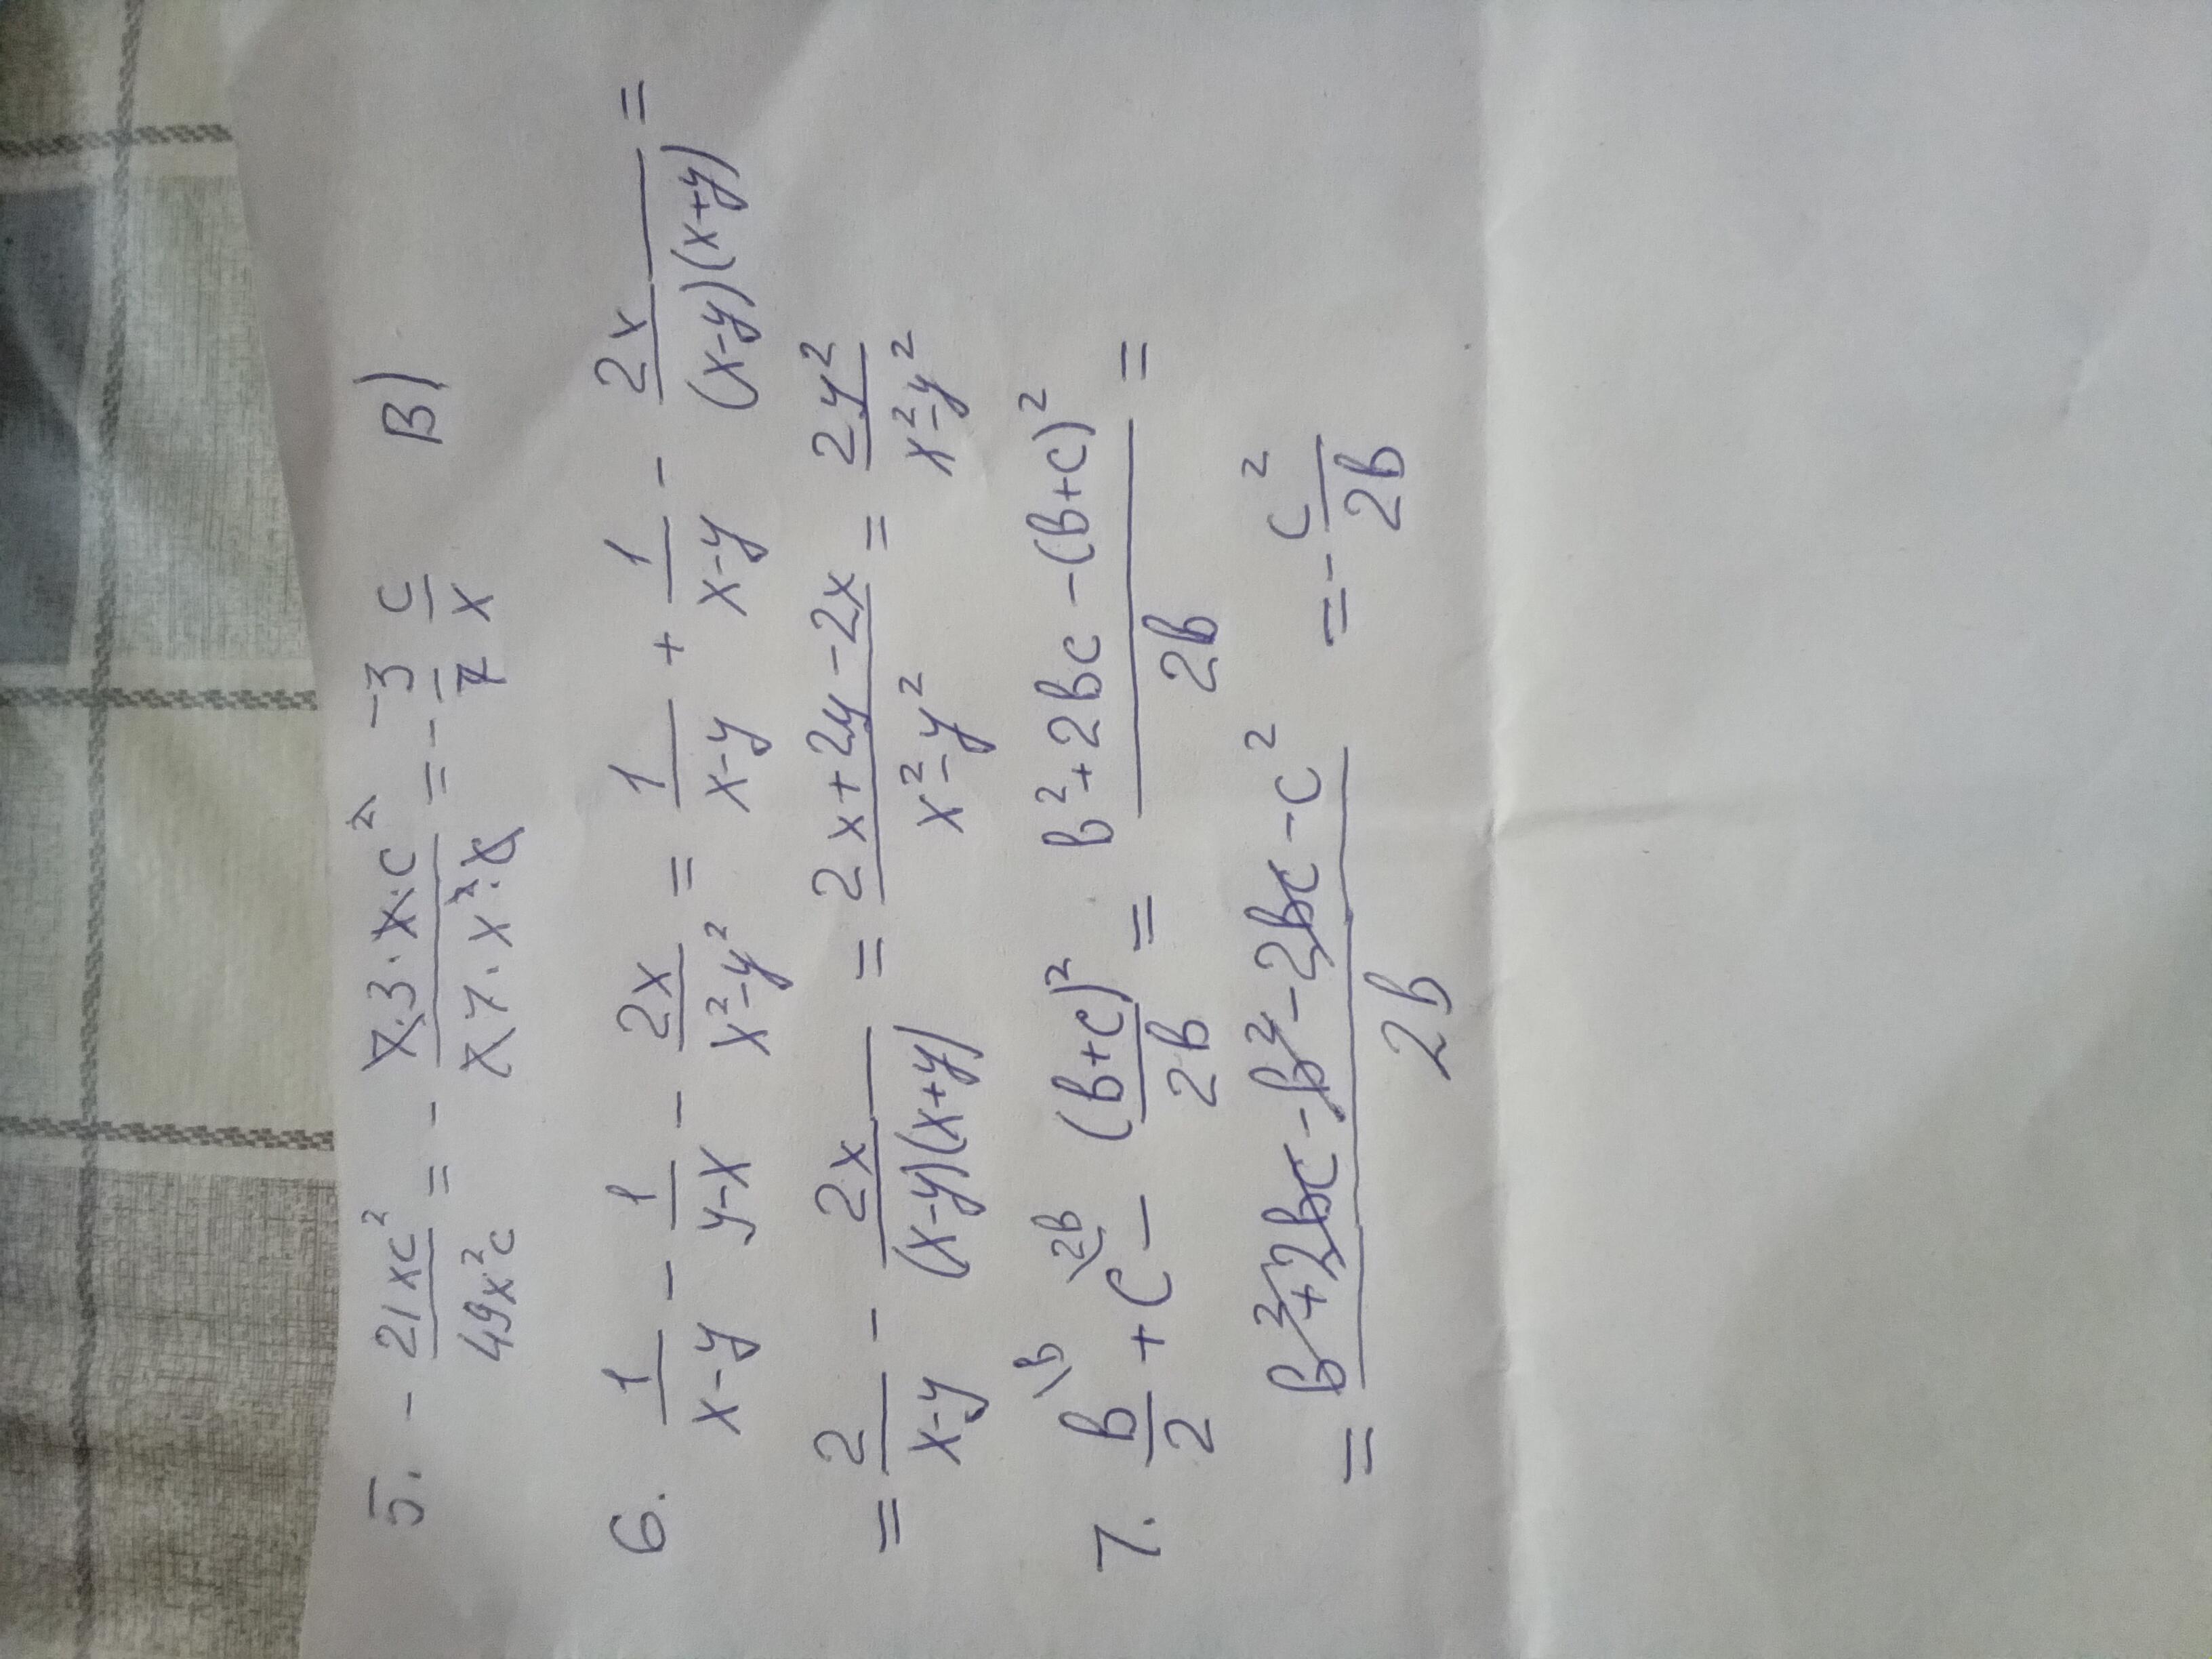 5. - 21xc²/49x²c = - 7·3·x·c²/77·x²·x = - 3/7 c/x В)
6. 1/x-y - 1/y-x - 2x/x²-y² = 1/x-y + 1/x-y - 2x/(x-y)(x+y) =
= 2/x-y - 2x/(x-y)(x+y) = 2x+2y-2x/x²-y² = 2y²/x²-y²
7. в/2 \в + c \2в - (в+c)²/2в = в²+2вc-(в+c)²/2в =
= в²+2вc-в²-2вc-c²/2в = - c²/2в